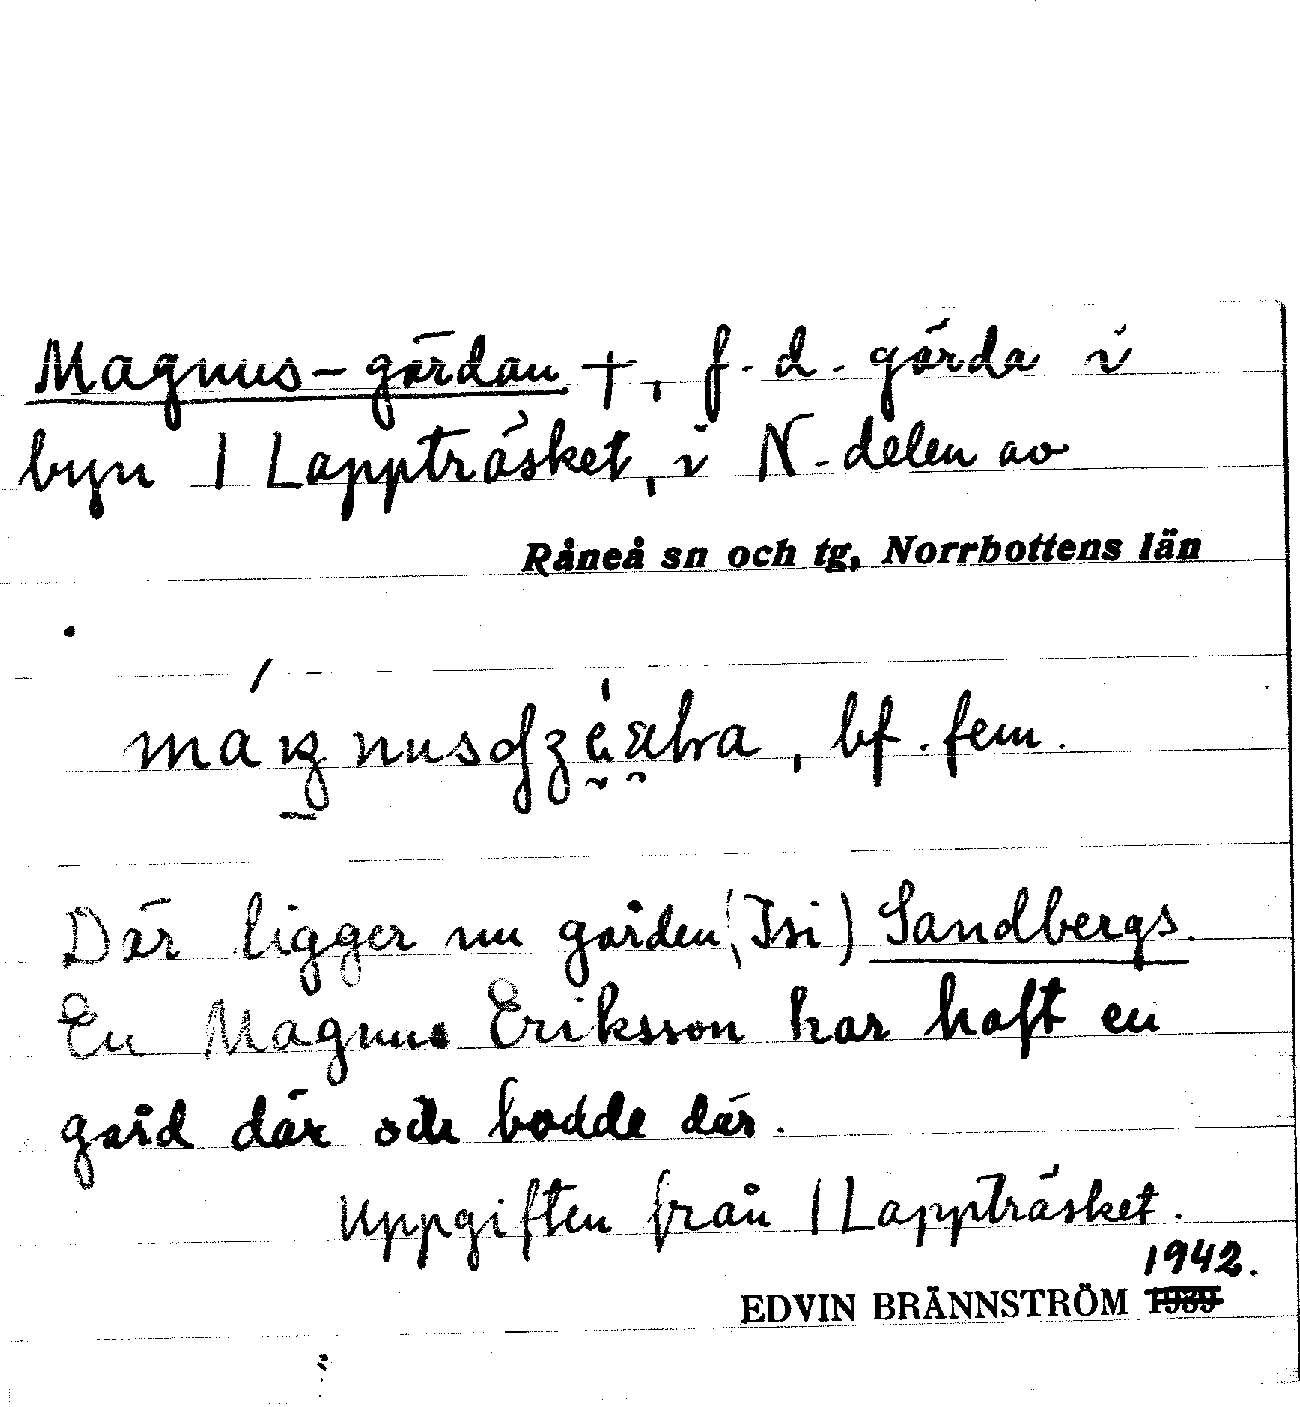 Magnus-gärdan +, f. d. gärda i
byn 1 Lappträsket, i N. delen av
Råneå sn och tg, Norrbottens län
, bf. fem.
Där ligger nu gården (Isi) Sandbergs.
En Magnus Eriksson har haft en
gård där och bodde där.
Uppgiften från 1 Lappträsket.
1942.
EDVIN BRÄNNSTRÖM 1939